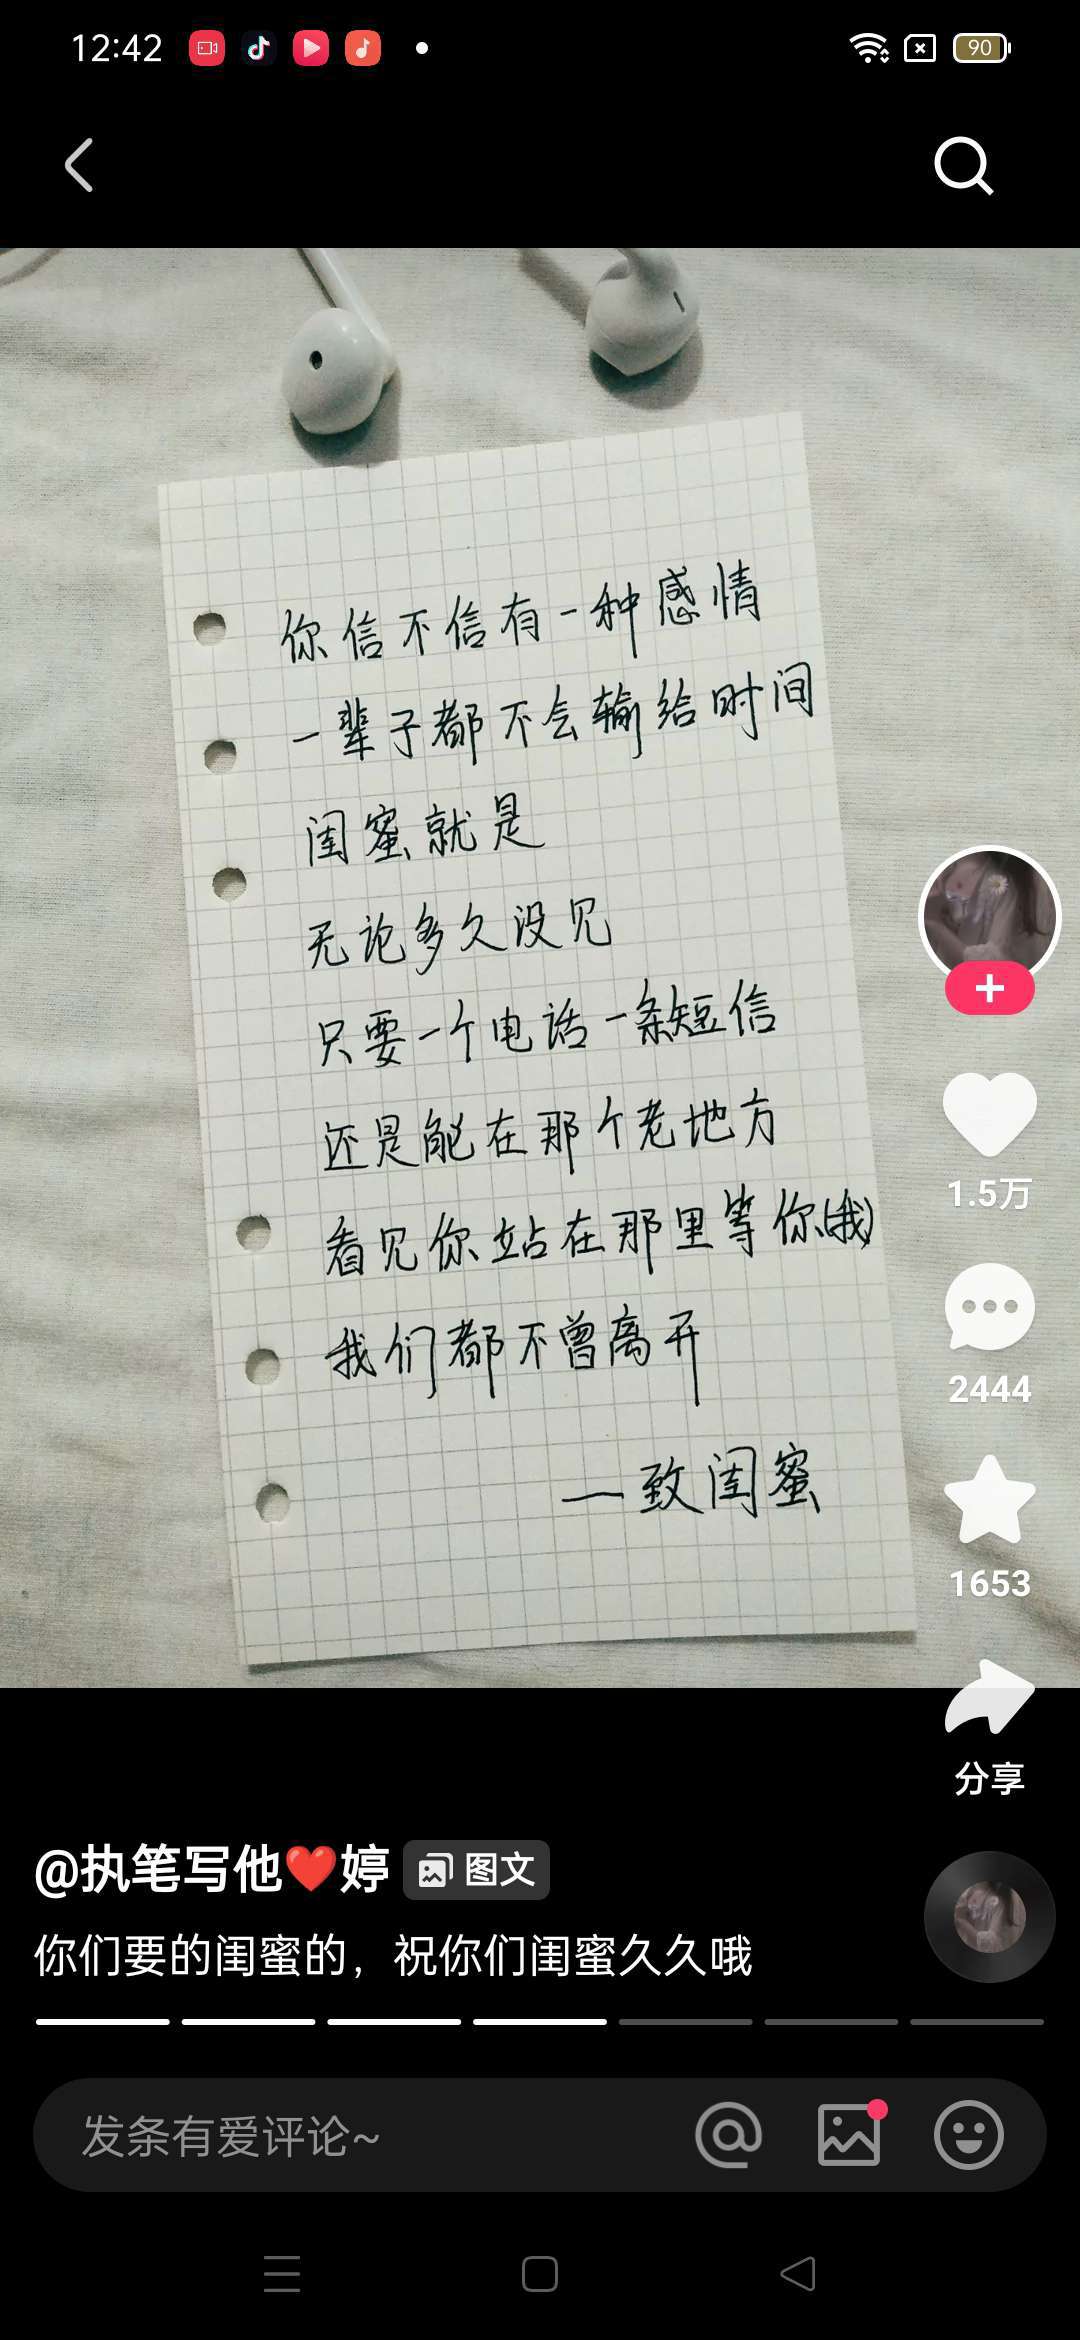 12:42
90
你信不信有一种感情
一辈子都不会输给时间
闺蜜就是
无论多久没见
只要一个电话一条短信
还是能在那个老地方
看见你站在那里等你(我)
我们都不曾离开
—致闺蜜
1.5万
2444
1653
分享
@执笔写他❤️婷 图文
你们要的闺蜜的，祝你们闺蜜久久哦
发条有爱评论~